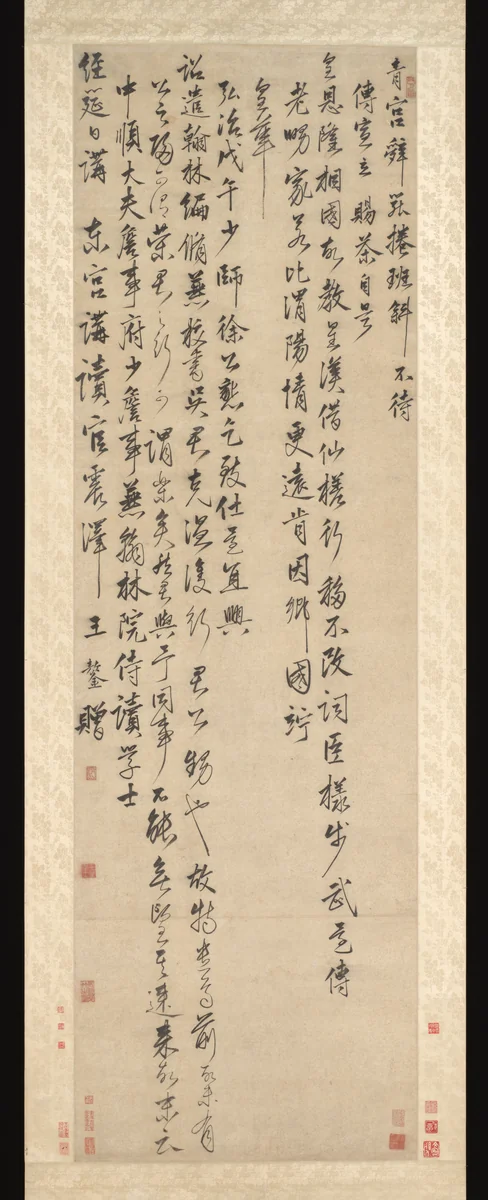 青宮辭罷捲班斜不待
傳宣立賜茶自是
皇恩隆相國故教星漢借仙槎行移不改詞臣樣步武還傳
老舅家若比渭陽情更遠肯因鄉國竚
皇華
弘治戊午少師徐公懇乞致仕還宜興
詔遣翰林編脩兼校書吳君克溫護行君公甥也故特前故未有
公之歸可謂榮君之行可謂樂矣然君與予同事不能無望其速來故末云
中順大夫詹事府少詹事兼翰林院侍讀學士
經筵日講東宮講讀官震澤王鏊贈